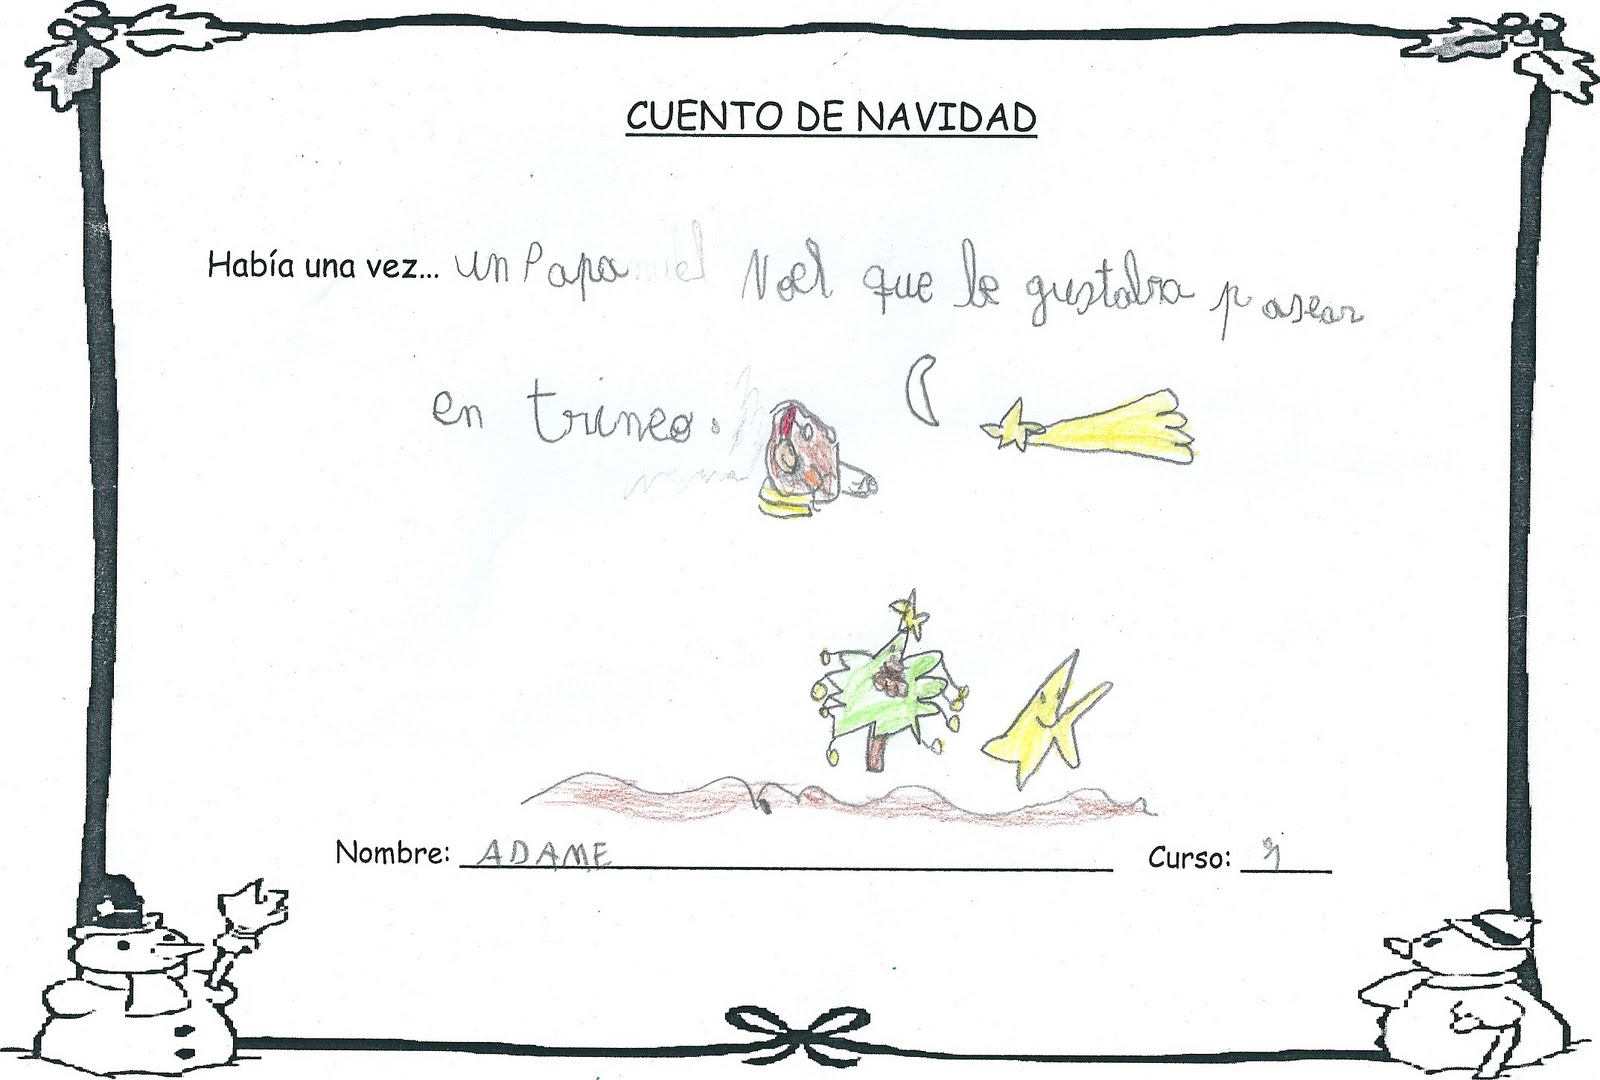 CUENTO DE NAVIDAD
Había una vez... un Papa Noel que le gustaba pasear
en trineo.
Nombre: ADAME Curso: